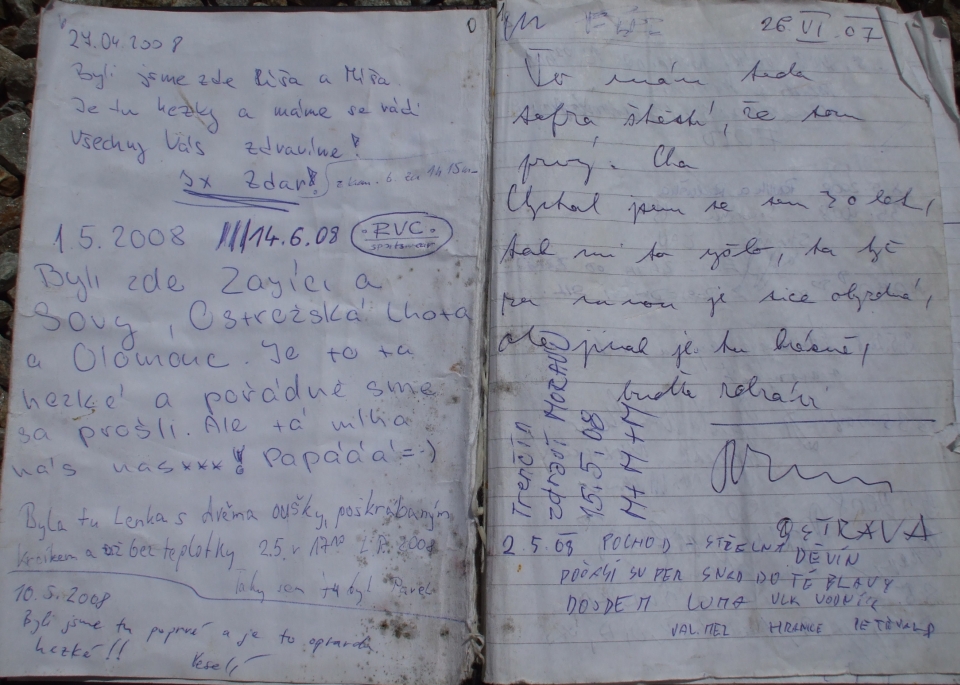 27.04.2008
Byli jsme zde Líša a Míša
Je tu hezky a máme se rádi
Všechny Vás zdravíme!
3x Zdar!
1.5.2008 14.6.08 RVC
Byli zde Zajíci a
Sovy, Ostrožská Lhota
a Olomouc. Je to ta
hezké a pořádně sme
sa prošli. Ale tá mlha
nás nas***! Papááá =:)
Byla tu Lenka s dvěma oušky, poškrábaným
krčíkem a už bez teplotky 2.5. v 17 10 2008
Taky sem tu byl Pavel
10.5.2008
Byli jsme tu poprvé a je to opravdu
hezké!! Veselí
26.VI.07
To mám teda
safra štěstí, že sem
prvý. Cha
Chystal jsem se sem 20 let,
tak mi to vyšlo, ta tyč
za mnou je sice obrovská,
ale jinak je tu krásně,
buďte zdrávi
Trenčín
zdraví Moravu
15.5.08
M+M+M+M
2.5.08 POCHOD - STŘELNÁ
DĚVÍN
POČASÍ SUPER SNAD DO TÉ BLAVY
DOJDEM LUMA VLK VODNÍK
VAL.MEZ HRANICE PETŘVALD